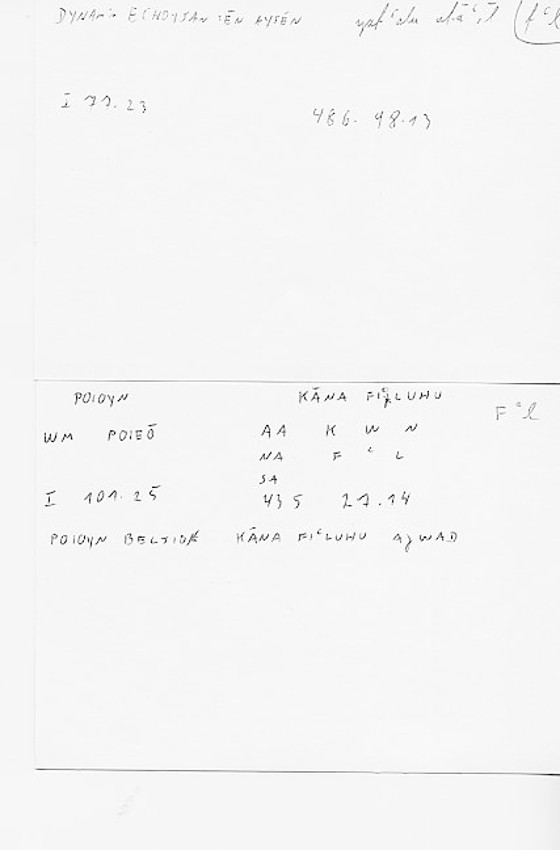 DYNAMIN ECHOYSAN TĒN AYTĒN
I 71.23 486. 98.13
POIOYN KĀNA FIʿLUHU
FʿL
WM POIEŌ AA K W N
NA F ʿ L
SA
I 101.25 435 27.14
POIOYN BELTION KĀNA FIʿLUHU AǧWAD